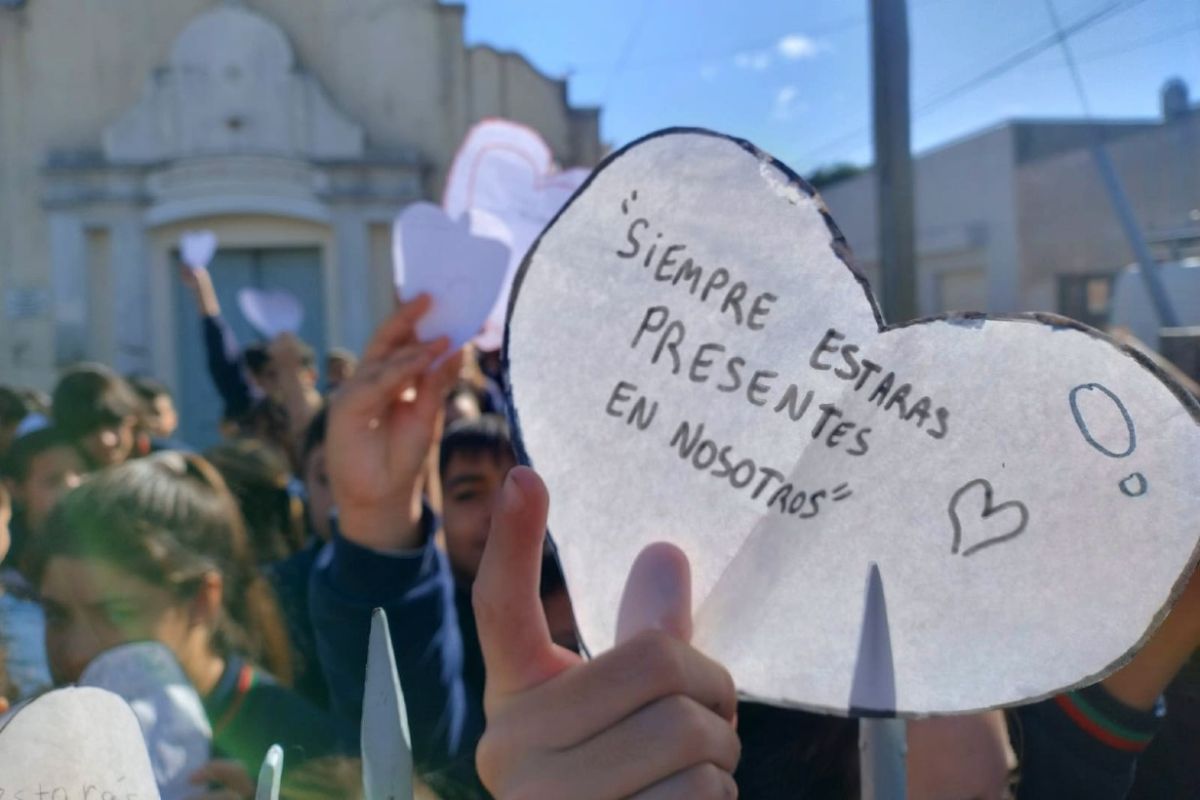 "SiEMPRE ESTARAS
PRESENTES
EN NOSOTROS"
estarás